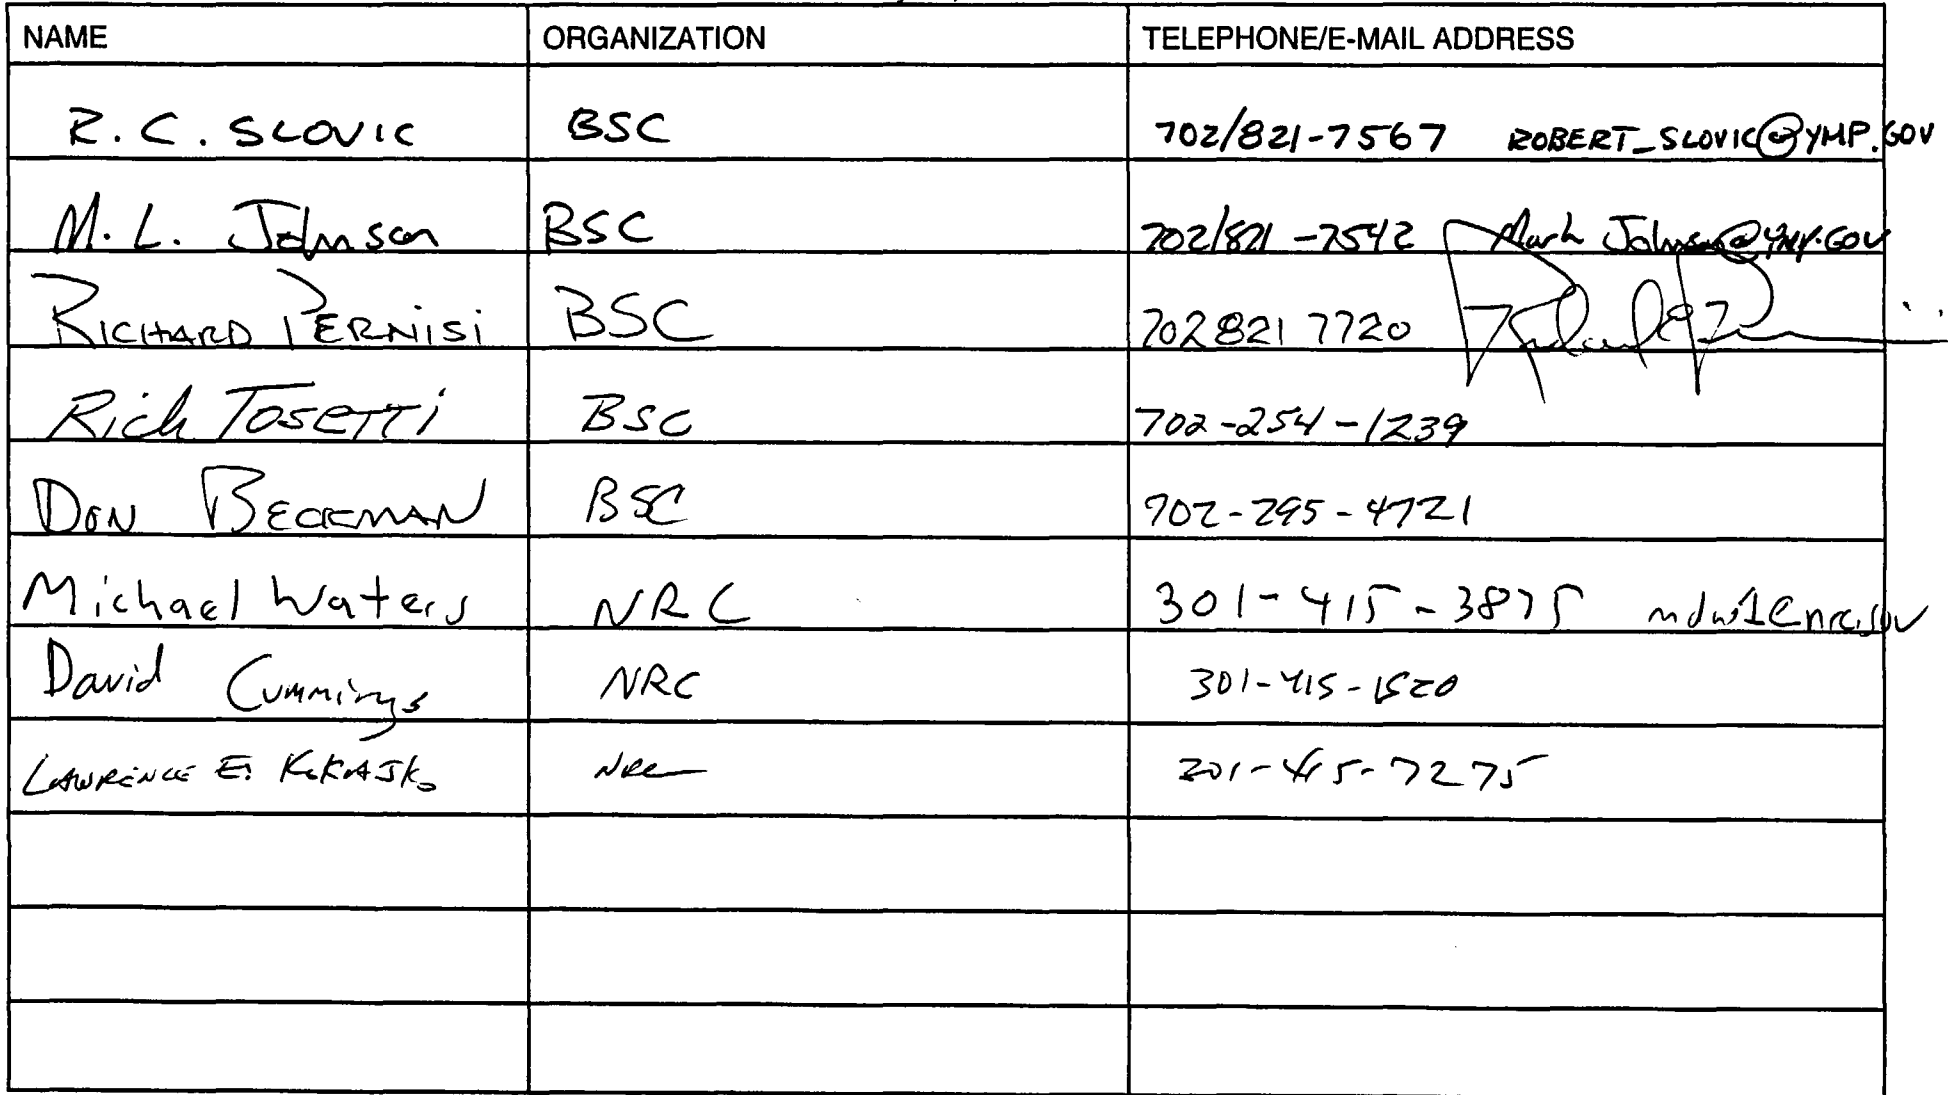 NAME ORGANIZATION TELEPHONE/E-MAIL ADDRESS
R. C. SLOVIC BSC 702/821-7567 ROBERT_SLOVIC@YMP.GOV
M. L. Johnson BSC 702/821-7542 Mark Johnson@YMP.GOV
RICHARD PERNISI BSC 702 821 7720
Rich TOSETTI BSC 702-254-1239
DON BECKMAN BSC 702-295-4721
Michael Waters NRC 301-415-3875 mdw1@nrc.gov
David Cummings NRC 301-415-1520
LAWRENCE E. KOKAJKO NRC 301-415-7275